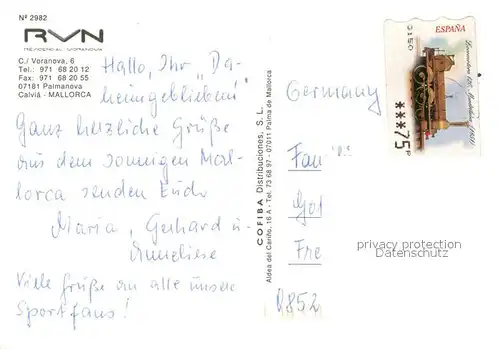 Nº 2982
RVN
RESIDENCIAL VORANOVA
C./ Voranova, 6
Tel.: 971 68 20 12
Fax: 971 68 20 55
07181 Palmanova
Calviá - MALLORCA
Hallo, Ihr „Da-
heimgebliebene"
Ganz herzliche Grüße
aus dem sonnigen Mal-
lorca senden Euch
Maria, Gerhard u.
Anneliese
Viele Grüße an alle unsere
Sportfans!
COFIBA Distribuciones, S. L.
Aldea del Cariño, 16 A - Tel. 73 68 97 - 07011 Palma de Mallorca
ESPAÑA
0150
***75 P
Germany
Fam
Gol
Fre
privacy protection
Datenschutz